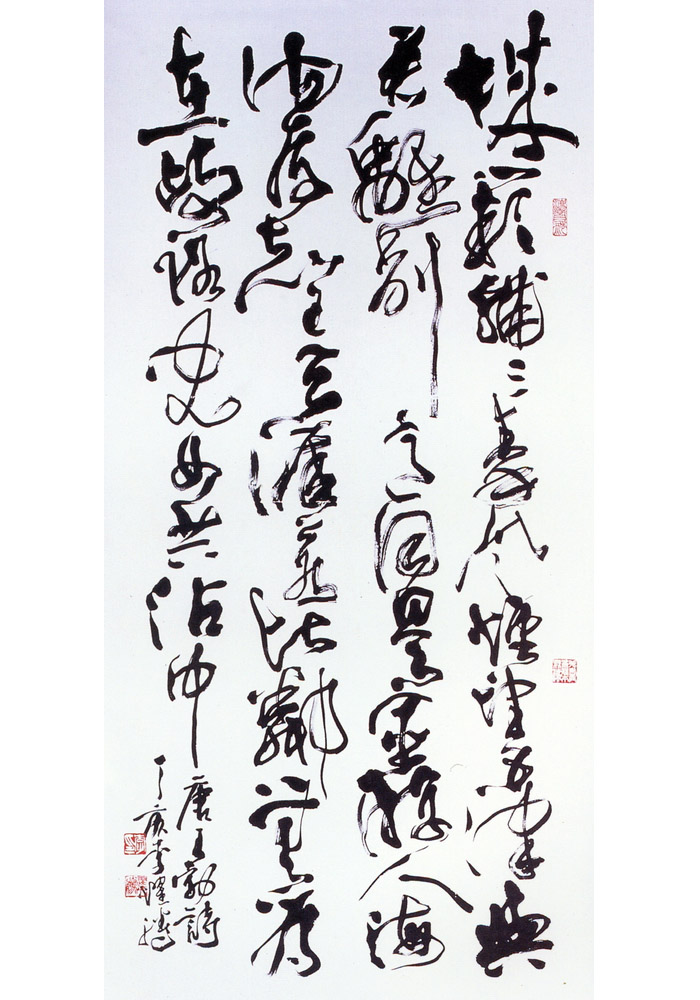 城闕輔三秦風煙望五津與
君離別意同是宦遊人海
內存知己天涯若比鄰無為
在歧路兒女共沾巾
唐王勃詩
丁亥李躍騰